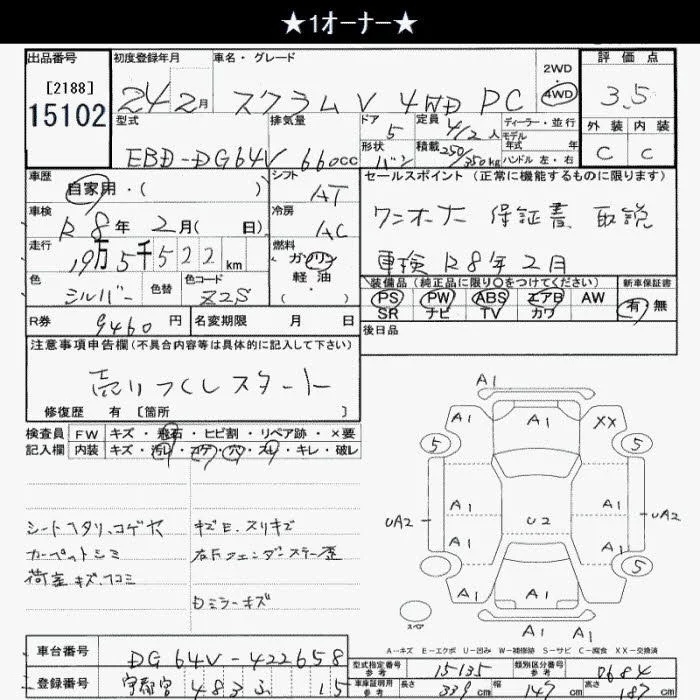 ★1オーナー★
出品番号 初度登録年月 車名・グレード 2WD 4WD 評価点
[2188]
15102
24 2月 スクラムV 4WD PC 3.5
型式 排気量 ドア 5 定員 4/2人 ディーラー・並行 外装 内装
モデル年式 年式
EBD-DG64V 660cc 形状 バン 積載 250/350kg ハンドル 左・右 C C
車歴 シフト セールスポイント (正常に機能するものに限ります)
自家用・( ) AT
車検 R8年 2月( 日) 冷房 AC ワンオーナー 保証書 取説
走行 19万5千522km 燃料 ガソリン 軽油 ( ) 車検R8年2月
色 シルバー 色替 色コード Z2S
装備品(純正品に限り〇をつけてください) 新車保証書
PS PW ABS エアB AW 有 無
SR ナビ TV カワ
R券 9460円 名変期限 月 日 後日品
注意事項申告欄(不具合内容等は具体的に記入して下さい)
売りつくしスタート
修復歴 有 [箇所 ]
検査員 FW キズ・飛石・ヒビ割・リペア跡・×要
記入欄 内装 キズ・汚レ・コゲ・穴・スレ・キレ・破レ
A1
A1 A1 XX
5 5
A1 A1
UA2 U2 UA2
A1 A1
A1 A1 A1 5
A1
スペア
シートヘタリ、コゲヤ キズE、スリキズ
カーペットシミ 右Fフェンダーステー歪
荷室キズ、凹コミ
Dミラーキズ
A-キズ E-エクボ U-凹み W-補修跡 S-サビ C-腐食 XX-交換済
車台番号 DG64V-422658
型式指定番号 参考 15135 類別区分番号 参考 0684
登録番号 宇都宮 483 ふ 15
車庫証明用 参考 長さ 339cm 幅 147cm 高さ 187cm